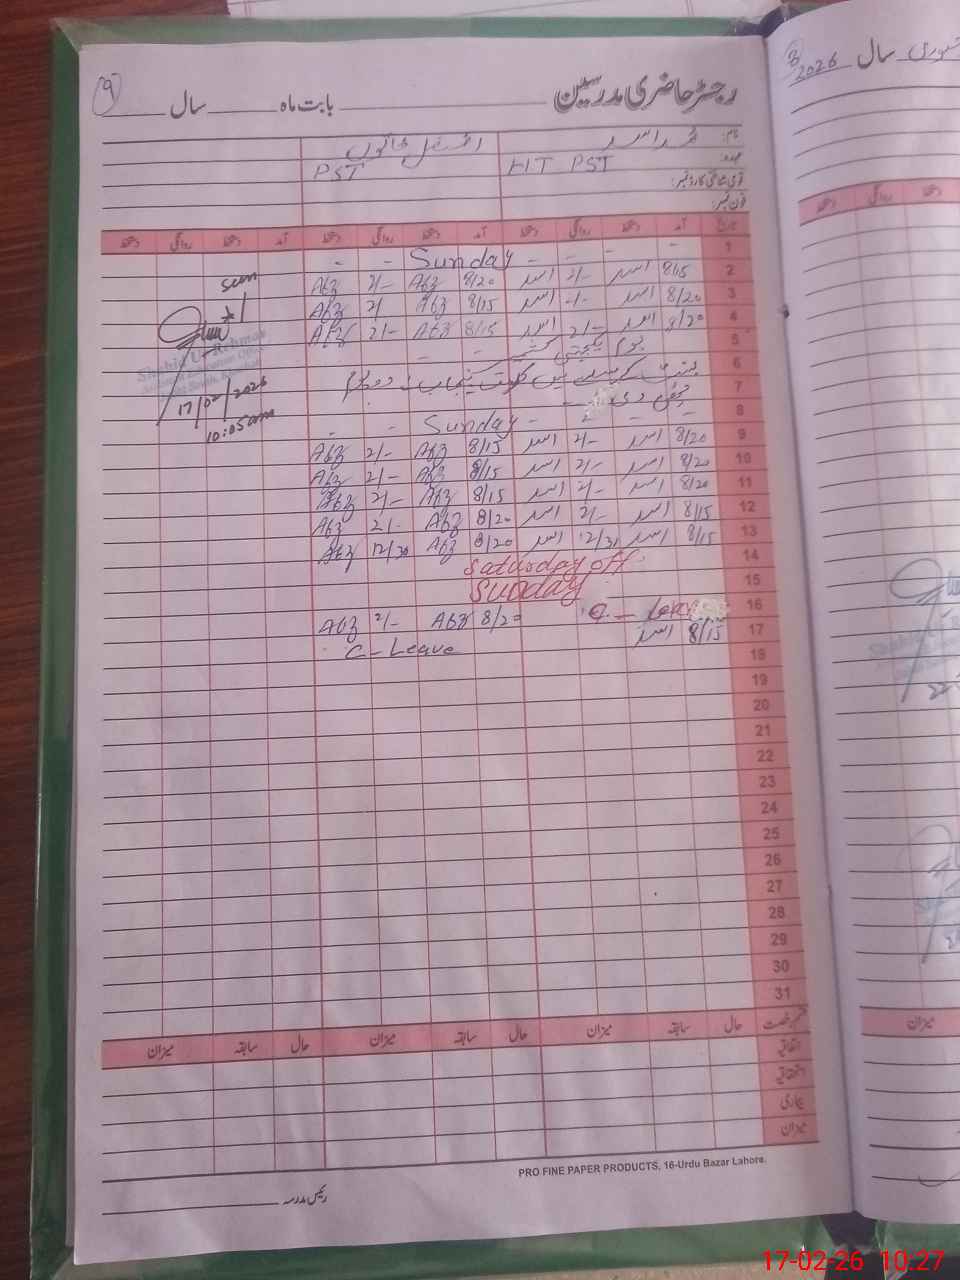 9
رجسٹر حاضری مدرسین بابت ماہ سال
نام: محمد اسد
عہدہ: HT PST PST
قومی شناختی کارڈ نمبر:
فون نمبر:
تاریخ آمد دستخط روانگی دستخط آمد دستخط روانگی دستخط آمد دستخط روانگی دستخط
1 - - - Sunday - -
2 8/15 اسد 2/- اسد 8/20 Abz 2/- Abz
3 8/20 اسد -/- اسد 8/15 Abz 2/ Abz
4 8/20 اسد 2/- اسد 8/15 Abz 2/- Abz
5 یوم یکجہتی کشمیر
6 بسنت میں پنجاب
7
8 - - - Sunday - -
9 8/20 اسد 2/- اسد 8/15 Abz 2/- Abz
10 8/20 اسد 2/- اسد 8/15 Abz 2/- Abz
11 8/20 اسد 2/- اسد 8/15 Abz 2/- Abz
12 8/15 اسد 2/- اسد 8/20 Abz 2/- Abz
13 8/15 اسد 12/31 اسد 8/20 Abz 12/30 Abz
14 Saturday off
15 Sunday
16 C - Leave 8/20 Abz 2/- Abz
17 8/15 اسد C-Leave
18
19
20
21
22
23
24
25
26
27
28
29
30
31
seen
Shahid Ur Rehman
17/02/2026
10:05am
قسم رخصت حال سابقہ میزان حال سابقہ میزان حال سابقہ میزان
اتفاقیہ
استحقاقیہ
بیماری
میزان
PRO FINE PAPER PRODUCTS, 16-Urdu Bazar Lahore.
رئیس مدرسہ
8
جنوری سال 2026
دستخط روانگی دستخط
میزان
17-02-26 10:27